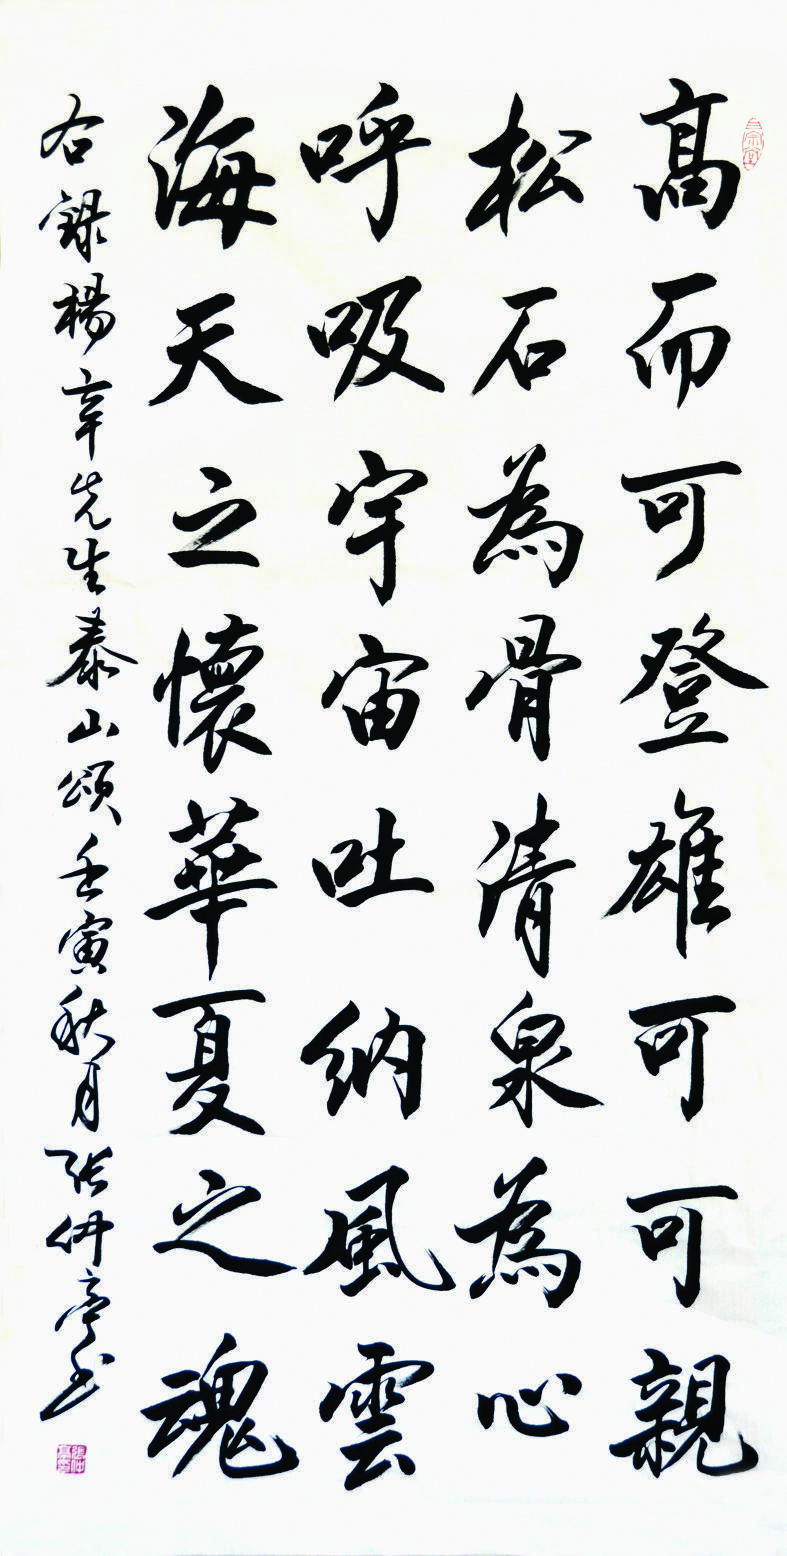 高而可登雄可可親
松石為骨清泉為心
呼吸宇宙吐納風雲
海天之懷華夏之魂
右錄楊辛先生泰山頌壬寅秋月张仲亭书